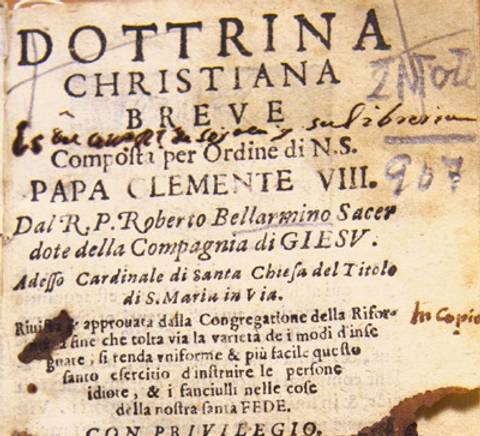 DOTTRINA
CHRISTIANA
BREVE
su libreria
Composta per Ordine di N.S.
PAPA CLEMENTE VIII.
907
Dal R. P. Roberto Bellarmino Sacer
dote della Compagnia di GIESV.
Adesso Cardinale di santa Chiesa del Titolo
di S. Maria in Via.
& approuata dalla Congregatione della Rifor-
a fine che tolta via la varietà de i modi d'inse
gnare, si renda vniforme & più facile questo
santo esercitio d'instruire le persone
idiote, & i fanciulli nelle cose
della nostra santa FEDE.
CON PRIVILEGIO.